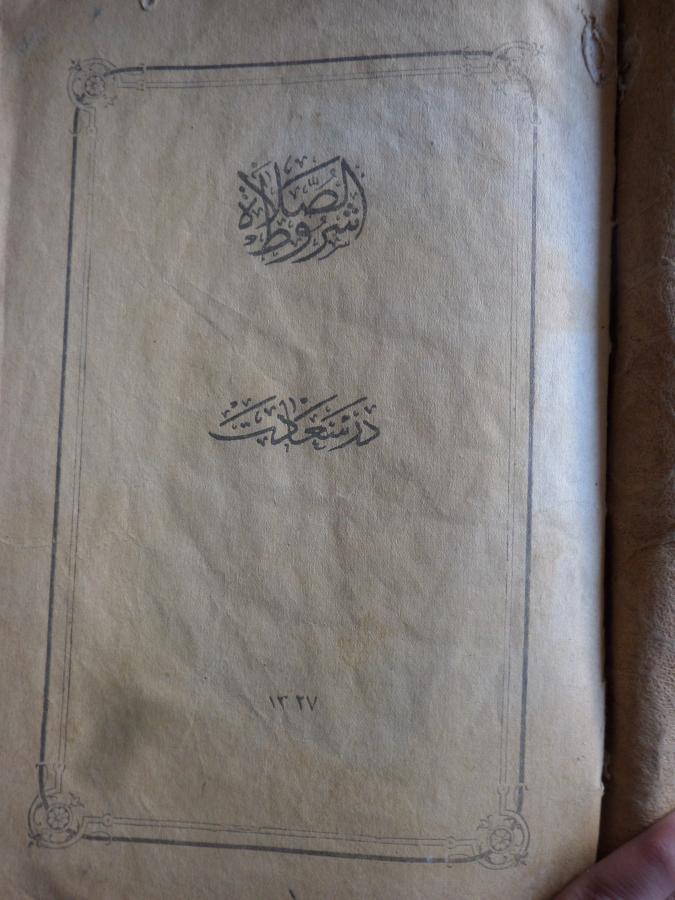 شروط الصلاة
درسعادت
١٣٢٧